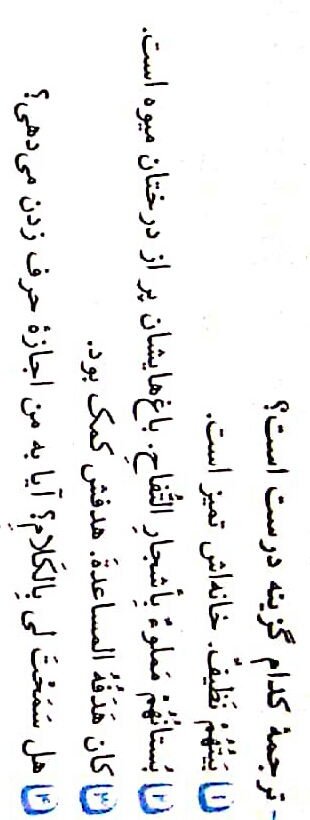 - ترجمهٔ کدام گزینه درست است؟
۱ بَیتُهُم نَظیفٌ. خانه‌اش تمیز است.
۲ بُستانُهُم مَملوءٌ بِأشجارِ التُّفاحِ. باغ‌هایشان پر از درختان میوه است.
۳ کان هَدَفُهُ المساعدةَ. هدفش کمک بود.
۴ هل سَمَحْتَ لی بِالکَلامِ؟ آیا به من اجازهٔ حرف زدن می‌دهی؟